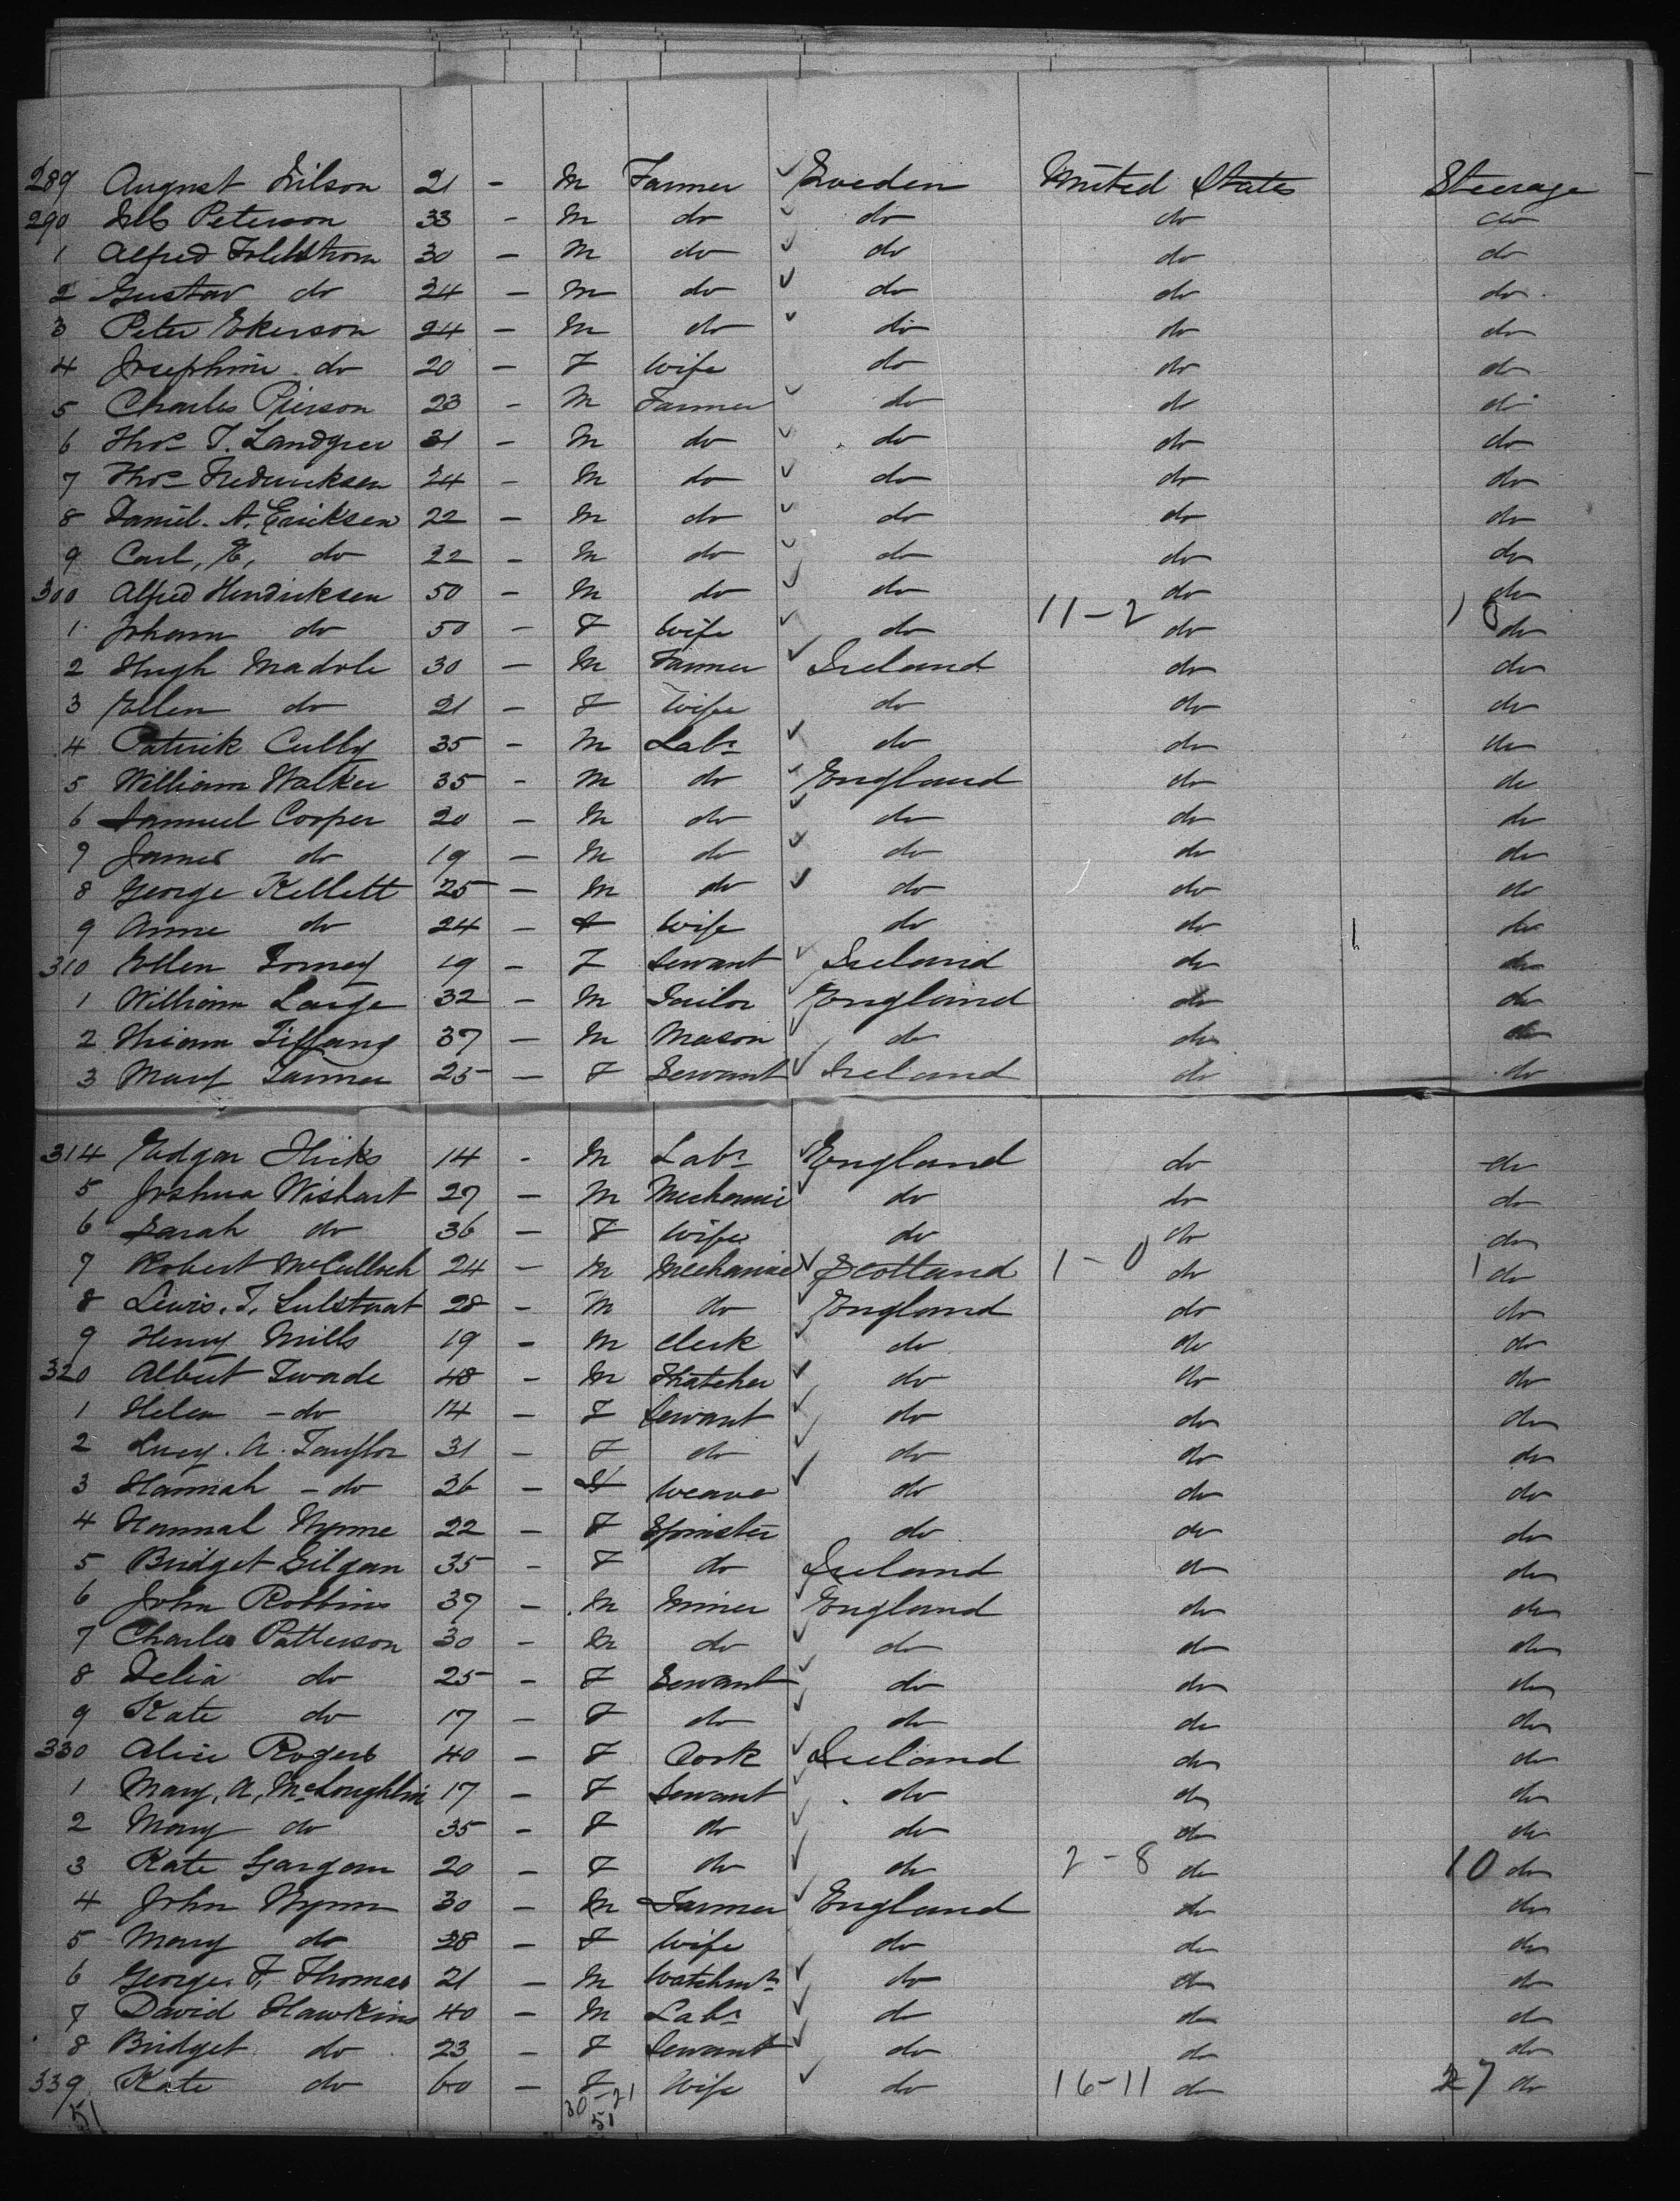 289 August Nilson 21 - M Farmer ✓ Sweden United States Steerage
290 Peterson 33 - M do ✓ do do do
1 Alfred 30 - M do ✓ do do do
2 Gustav do 24 - M do ✓ do do do
3 Peter Ekerson 24 - M do ✓ do do do
4 Josephine do 20 - F Wife do do do
5 Charles Pierson 23 - M Farmer ✓ do do do
6 Thos T. Landgren 31 - M do ✓ do do do
7 Thos Fredericksen 24 - M do ✓ do do do
8 Daniel. A. Ericksen 22 - M do ✓ do do do
9 Carl, do 22 - M do ✓ do do do
300 Alfred Hendricksen 50 - M do ✓ do do do
1 Johann do 50 - F Wife ✓ do 11-2 do 13 do
2 Hugh Madole 30 - M Farmer ✓ Ireland do do
3 Ellen do 21 - F Wife do do do
4 Patrick Cully 35 - M Labr ✓ do do do
5 William Walker 35 - M do ✓ England do do
6 Samuel Cooper 20 - M do ✓ do do do
7 James do 19 - M do ✓ do do do
8 George Kellett 25 - M do ✓ do do do
9 Anne do 24 - F Wife do do do
310 Ellen 19 - F Servant ✓ Ireland do do
1 William Large 32 - M Sailor ✓ England do do
2 Hiram Tiffany 37 - M Mason ✓ do do do
3 Mary Farmer 25 - F Servant ✓ Ireland do do
314 Edgar Hicks 14 - M Labr ✓ England do do
5 Joshua Wishart 27 - M Mechanic ✓ do do do
6 Sarah do 36 - F Wife do do do
7 Robert McCulloch 24 - M Mechanic ✓ Scotland 1-0 do 1 do
8 Lewis. T. 28 - M do ✓ England do do
9 Henry Mills 19 - M Clerk ✓ do do do
320 Albert Swade 48 - M Thatcher ✓ do do do
1 Helen - do 14 - F Servant ✓ do do do
2 Lucy. A. Taylor 31 - F do ✓ do do do
3 Hannah - do 26 - F Weaver ✓ do do do
4 Hannah Wynne 22 - F Spinster do do do
5 Bridget Gilgan 35 - F do Ireland do do
6 John Robbins 37 - M Miner ✓ England do do
7 Charles Patterson 30 - M do ✓ do do do
8 Delia do 25 - F Servant ✓ do do do
9 Kate do 17 - F do ✓ do do do
330 Alice Rogers 40 - F Cook ✓ Ireland do do
1 Mary, A, McLoughlin 17 - F Servant ✓ do do do
2 Mary do 35 - F do ✓ do do do
3 Kate Gargan 20 - F do ✓ do 2-8 do 10 do
4 John Wynn 30 - M Farmer ✓ England do do
5 Mary do 28 - F Wife do do do
6 George. F. Thomas 21 - M Watchmr ✓ do do do
7 David Hawkins 40 - M Labr ✓ do do do
8 Bridget do 23 - F Servant ✓ do do do
339 Kate do 60 - F Wife ✓ do 16-11 do 27 do
51 30-21
51